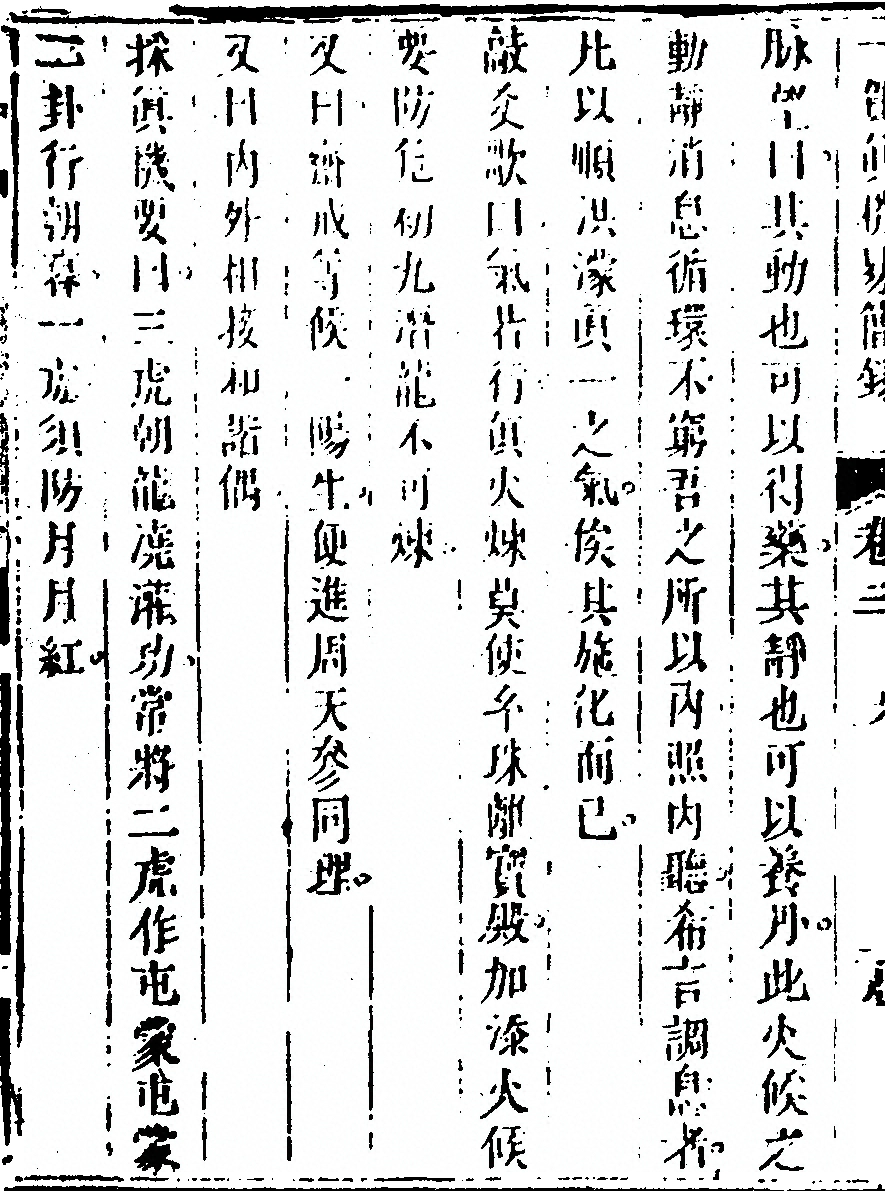 脉望曰其動也可以得藥其靜也可以養丹此火候之
動靜消息循環不窮吾之所以內照內聽希言調息者
此以順洪濛真一之氣俟其施化而已
敲爻歌曰氣若行真火煉莫使玄珠離寶殿加添火候
要防危初九潛龍不可煉
又曰齋戒等候一陽生便進周天參同理
又曰內外相接和諧偶
採真機要曰三虎朝龍澆灌功常將二虎作屯蒙屯蒙
二卦行朝暮一虎須防月月紅
卷二